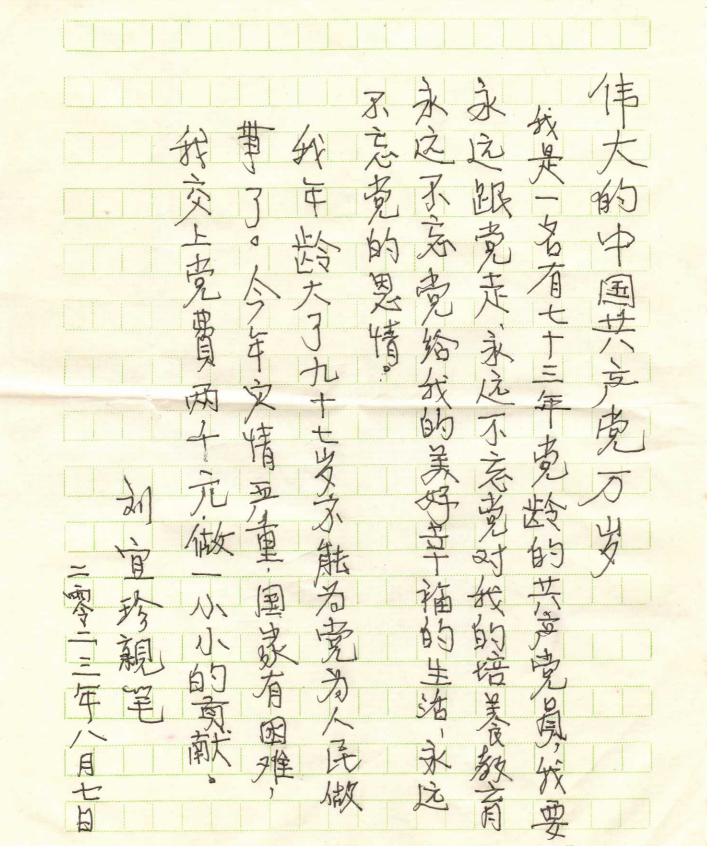 伟大的中国共产党万岁
我是一名有七十三年党龄的共产党员，我要
永远跟党走、永远不忘党对我的培养教育
永远不忘党给我的美好幸福的生活，永远
不忘党的恩情。
我年龄大了九十七岁不能为党为人民做
事了。今年灾情严重，国家有困难，
我交上党費两千元.做一小小的贡献。
刘宜珍親笔
二零二三年八月七日